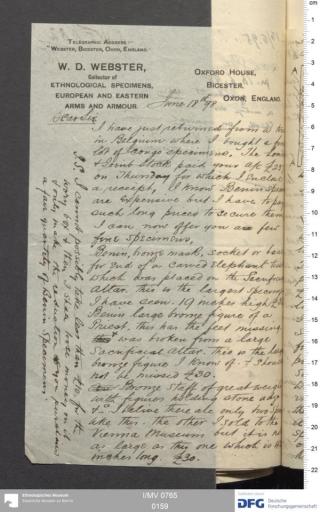 TELEGRAPHIC ADDRESS:—
"WEBSTER, BICESTER, OXON, ENGLAND."
W. D. WEBSTER,
Collector of
ETHNOLOGICAL SPECIMENS,
EUROPEAN AND EASTERN
ARMS AND ARMOUR.
OXFORD HOUSE,
BICESTER,
OXON, ENGLAND.
June 18th 98
Dear Sir
I have just returned from a
in Belgium where I bought a
lot of Congo specimens. The
& Stock paid your
on Thursday for which I enclose
a receipt, I know Benin
are expensive but I have to pay
such long prices to secure them
I can now offer you a few
fine specimens,
Benin, bronze mask, socket or base
for end of a carved elephant tusk
which was placed on the Sacrificial
Altar. this is the largest specimen
I have seen. 19 inches high
Benin large bronze figure of a
Priest, this has the feet missing
was broken from a large
Sacrificial Altar. this is the largest
bronze figure I know of. & should
not be missed £50.
Bronze Staff of great weight
with figures holding stone
&c. I believe there are only two
like this. the other I sold to the
Vienna Museum but it is not
as large as this one which is
inches long. £30.
P.S. I cannot possibly take less than £10. for the
ivory box & then I shall lose money on it
I only made the reduction on your purchasing
a fair quantity of Benin Specimens
Ethnologisches Museum
Staatliche Museen zu Berlin
I/MV 0765
0159
DFG
Deutsche
Forschungsgemeinschaft
cm
1
2
3
4
5
6
7
8
9
10
11
12
13
14
15
16
17
18
19
20
21
22